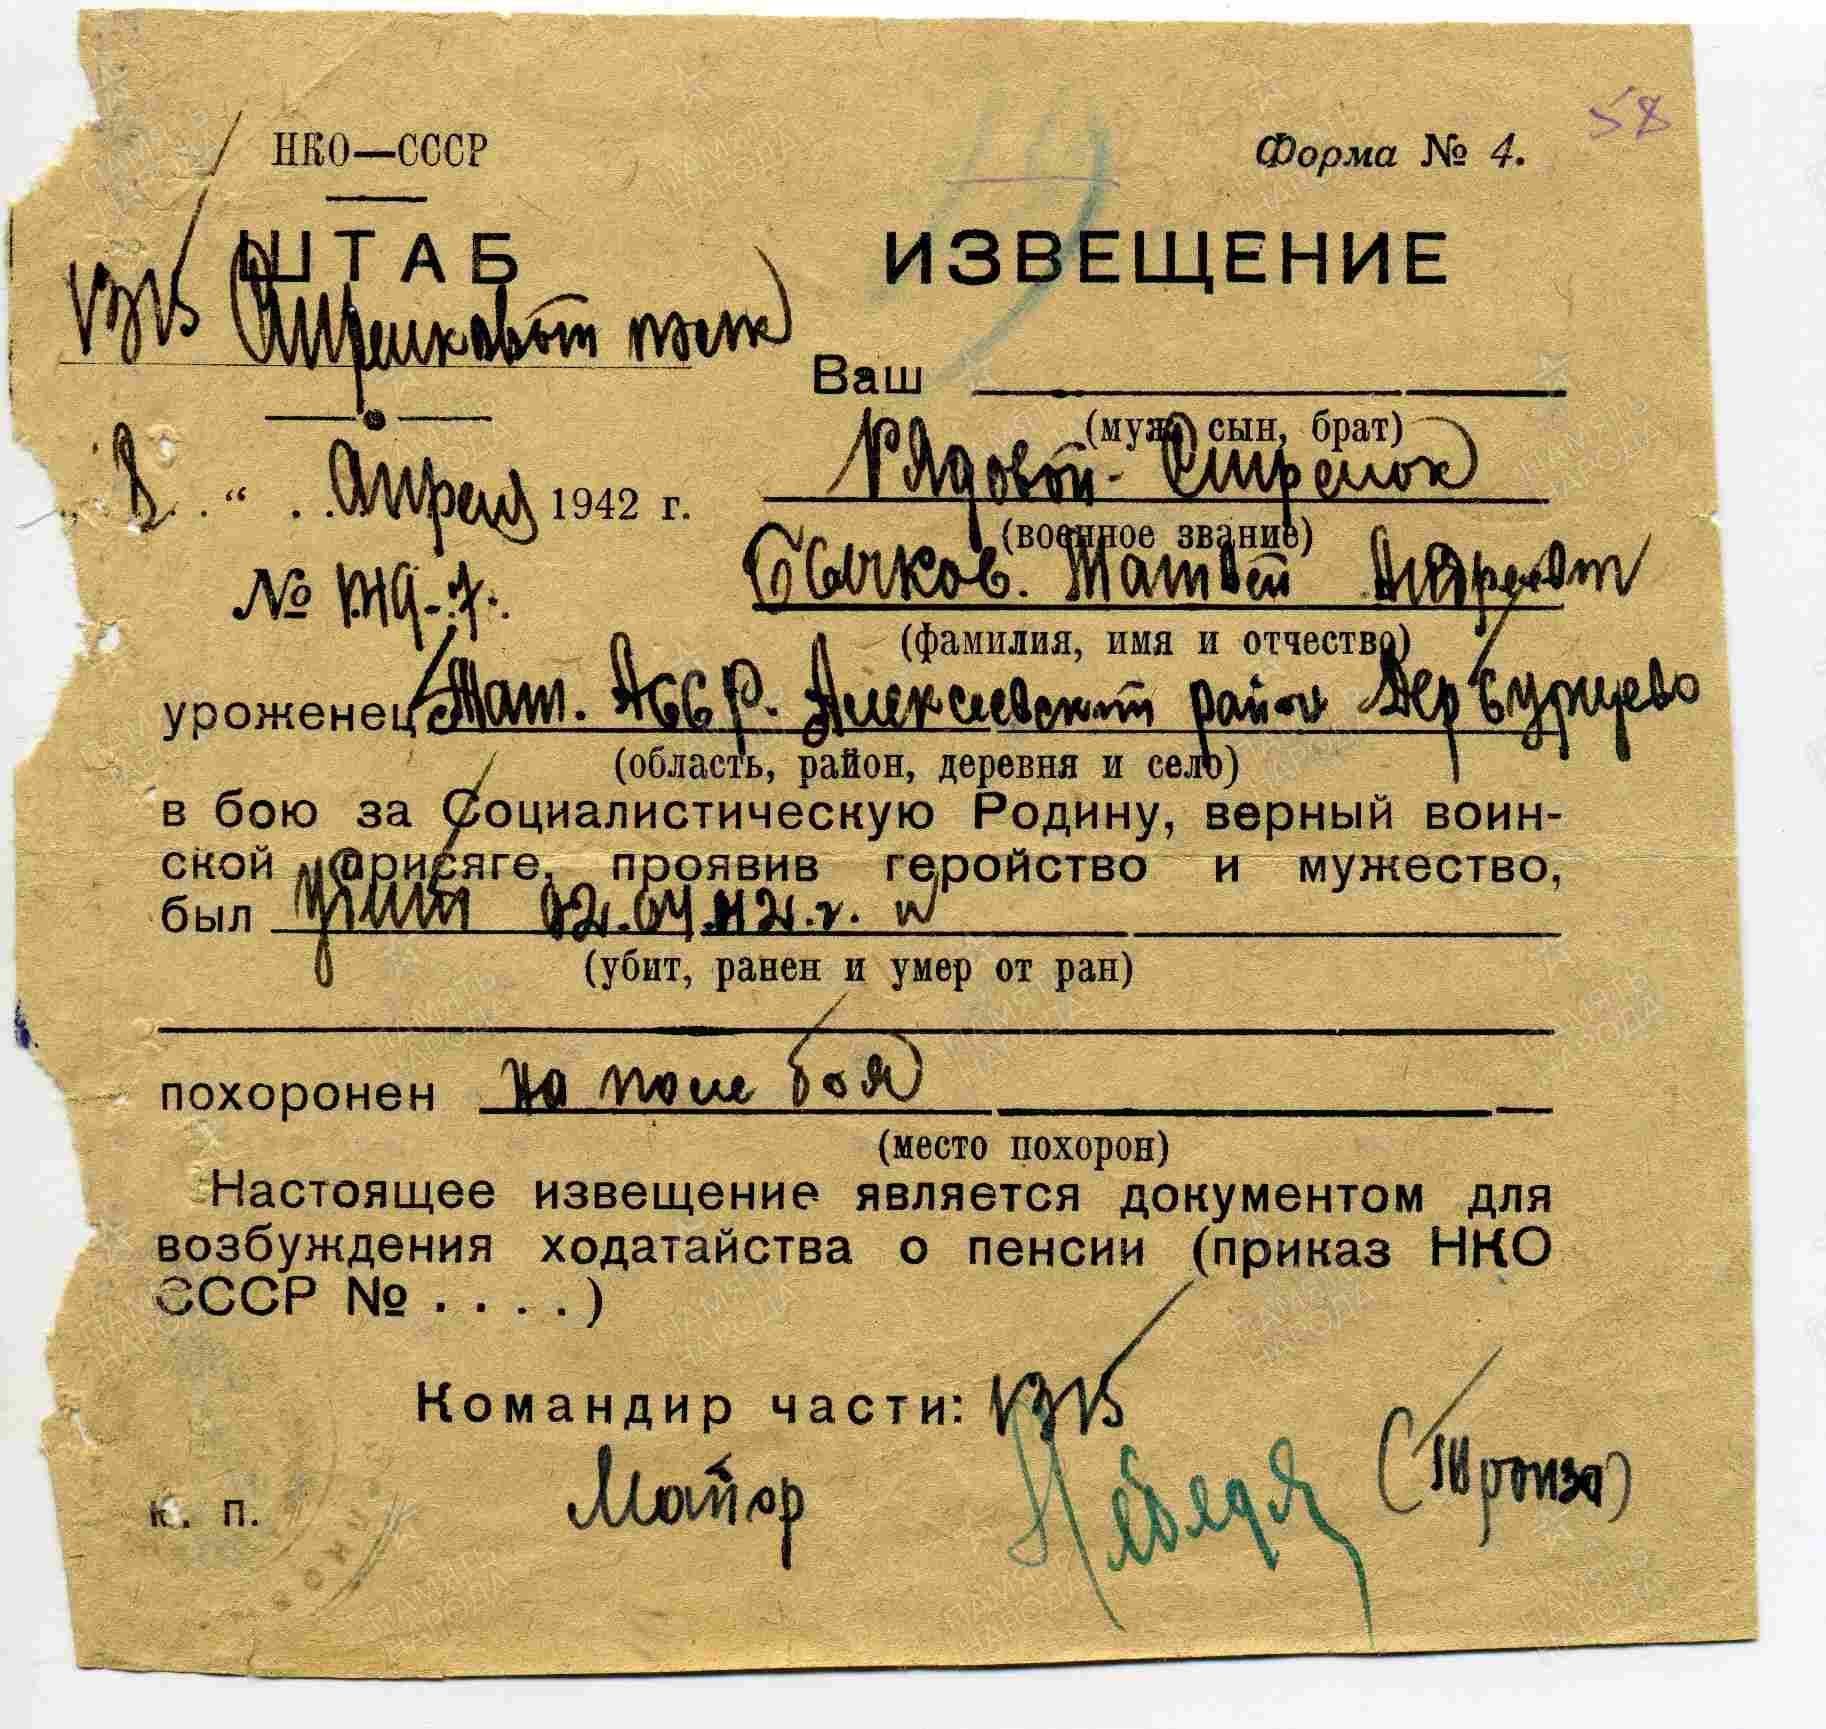 58
НКО—СССР
Форма № 4.
ШТАБ
ИЗВЕЩЕНИЕ
Ваш
(муж, сын, брат)
8 " Апреля 1942 г.
Рядовой - Стрелок
(военное звание)
Бычков. Матвей
(фамилия, имя и отчество)
уроженец Тат. АССР. Алексеевский район Дер
(область, район, деревня и село)
в бою за Социалистическую Родину, верный воин-
ской присяге, проявив геройство и мужество,
был убит 02.04.42.г. и
(убит, ранен и умер от ран)
похоронен на поле боя
(место похорон)
Настоящее извещение является документом для
возбуждения ходатайства о пенсии (приказ НКО
СССР № . . . .)
Командир части:
Майор
п.
ПАМЯТЬ НАРОДА